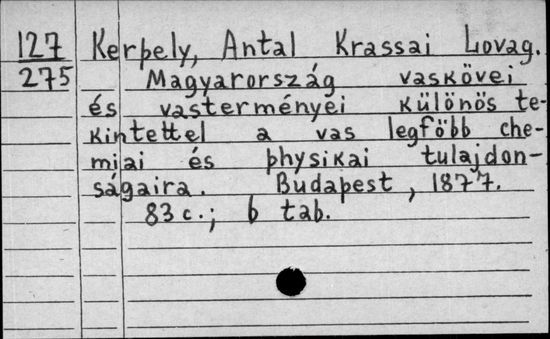 127 Kerpely, Antal Krassai Lovag.
275 Magyarország vaskövei
és vasterményei különös te-
kintettel a vas legföbb che-
miai és physikai tulajdon-
ságaira. Budapest, 1877.
83 c.; 6 tab.